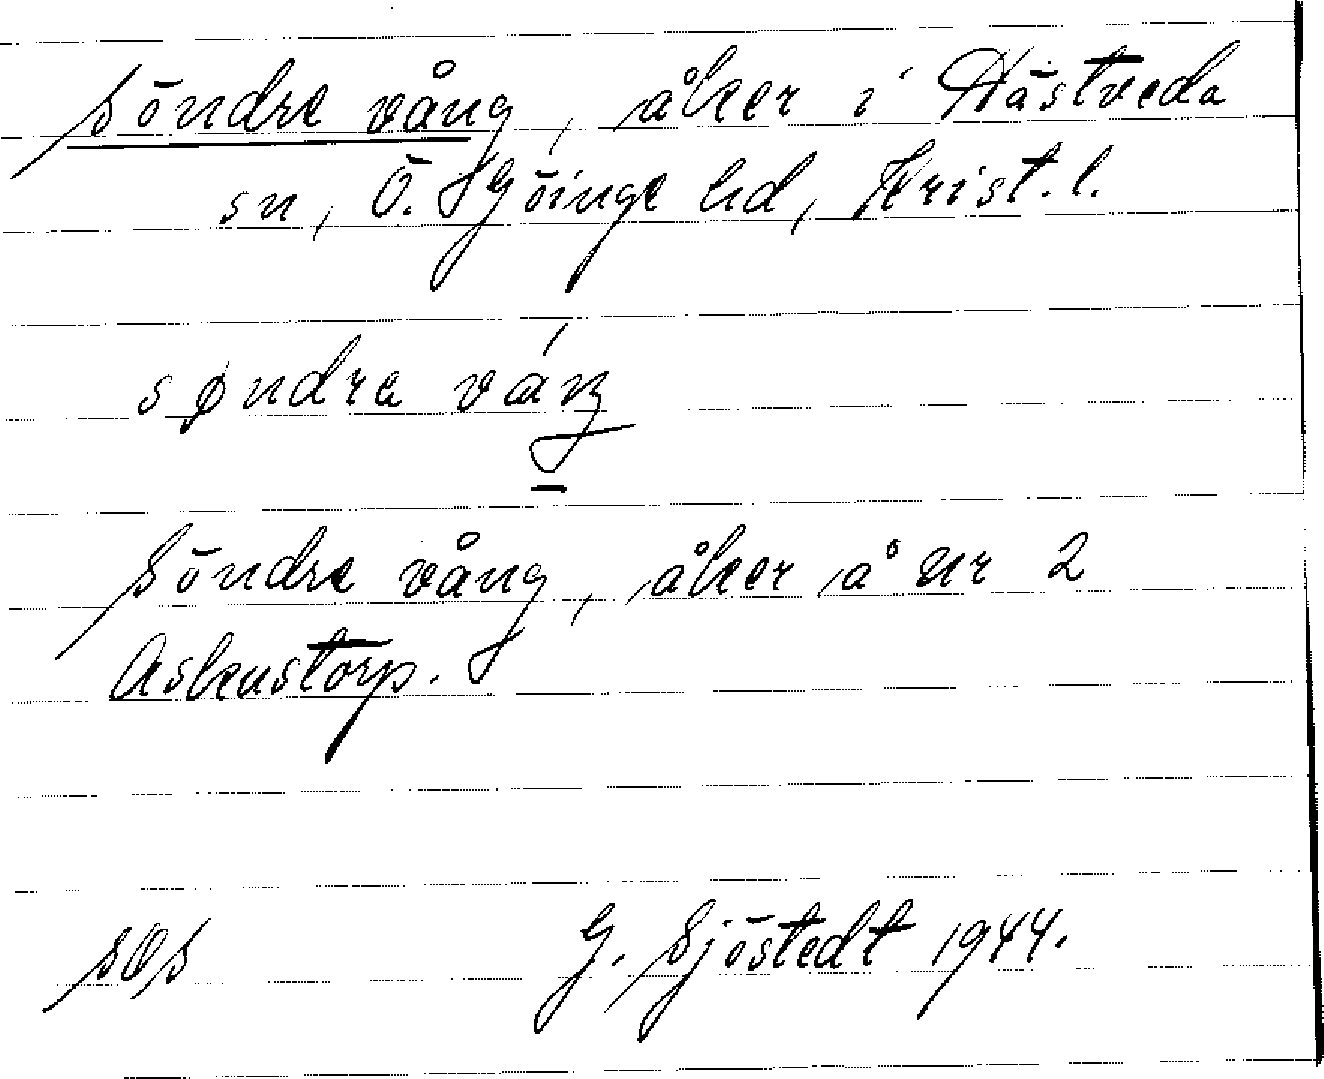 Söndre vång, åker i Hästveda
sn, Ö. Göinge hd, Krist. l.
søndra váŋ
Söndre vång, åker å nr 2
Askenstorp.
SOS G. Sjöstedt 1944.